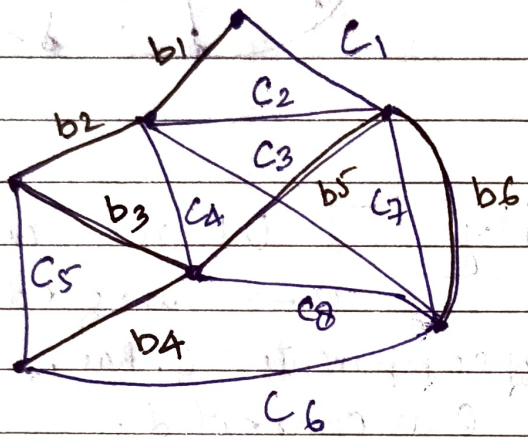 b1
C1
C2
b2
C3
b5
b6
b3
C4
C7
C5
C8
b4
C6